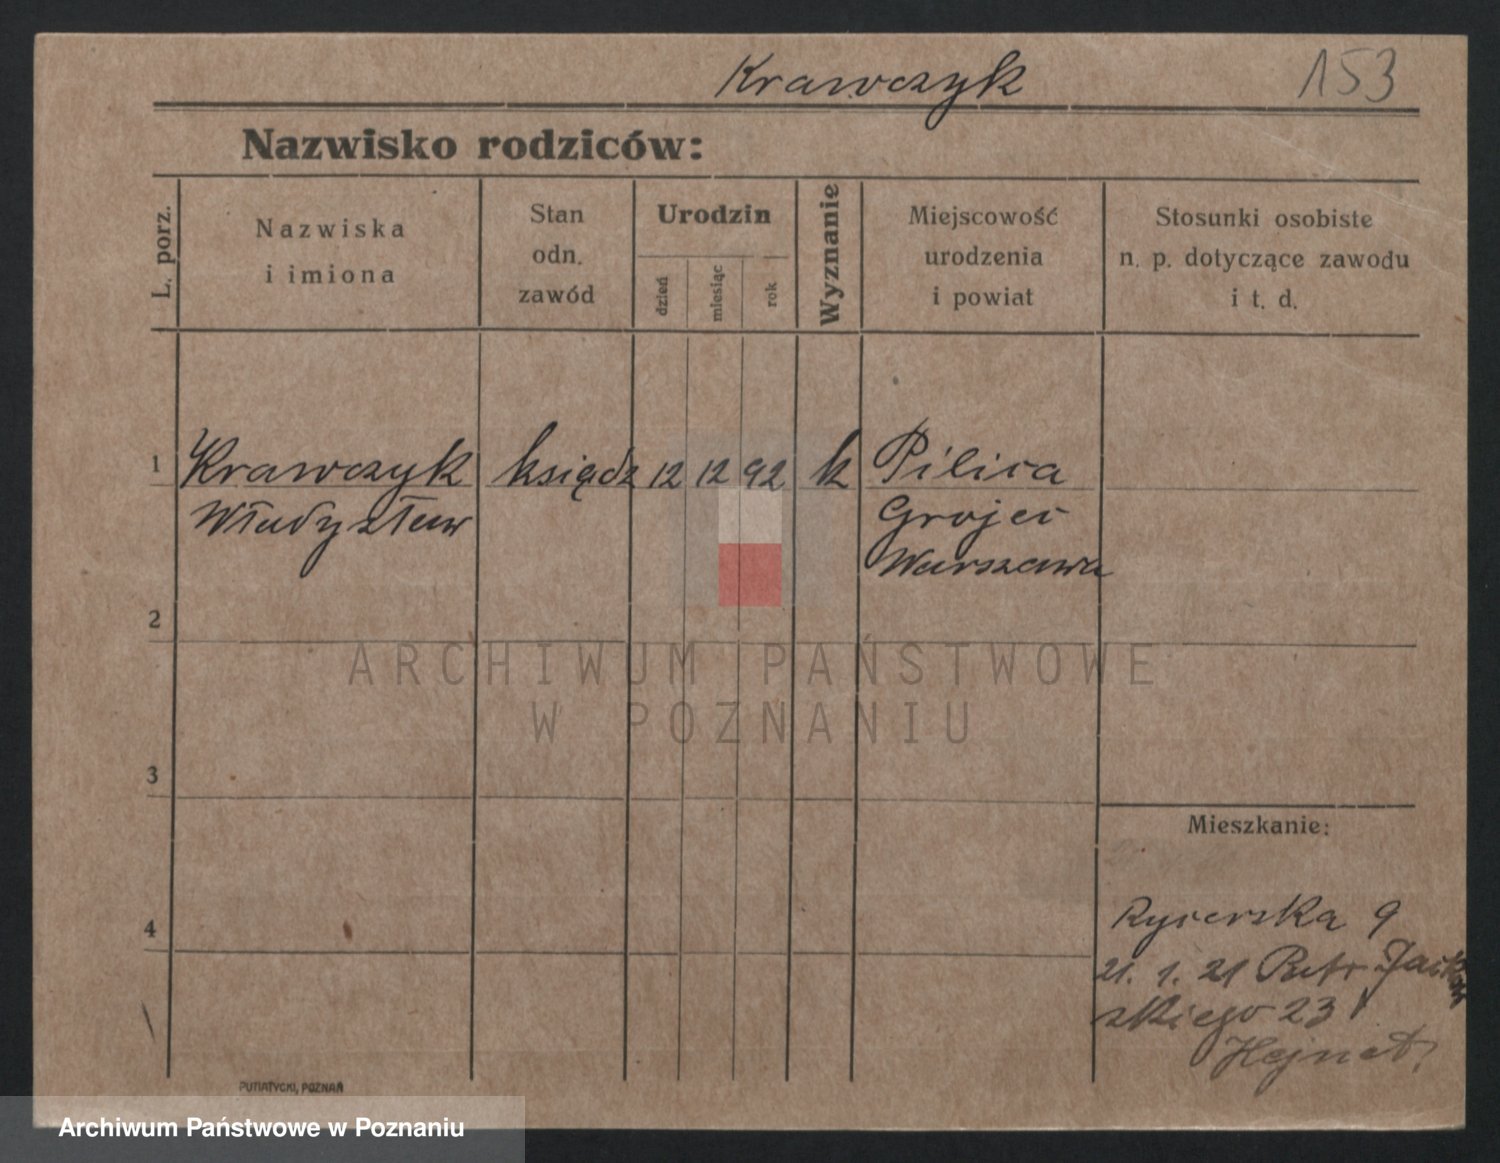 Krawczyk
153
Nazwisko rodziców:
L. porz.
Nazwiska
i imiona
Stan
odn.
zawód
Urodzin
dzień
miesiąc
rok
Wyznanie
Miejscowość
urodzenia
i powiat
Stosunki osobiste
n. p. dotyczące zawodu
i t. d.
1
Krawczyk
Władysław
ksiądz
12
12
92
k
Pilica
Grojec
Warszawa
2
ARCHIWUM PAŃSTWOWE
W POZNANIU
3
Mieszkanie:
4
Rycerska 9
21. 1. 21 Patr. Jacko
wskiego 23
PUTIATYCKI, POZNAŃ
Archiwum Państwowe w Poznaniu